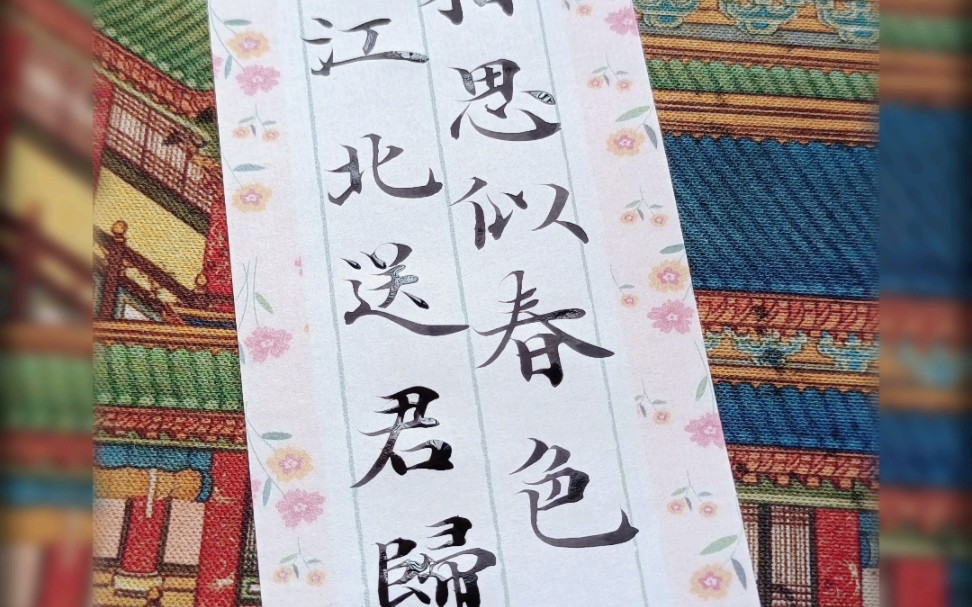 思似春色
江北送君歸